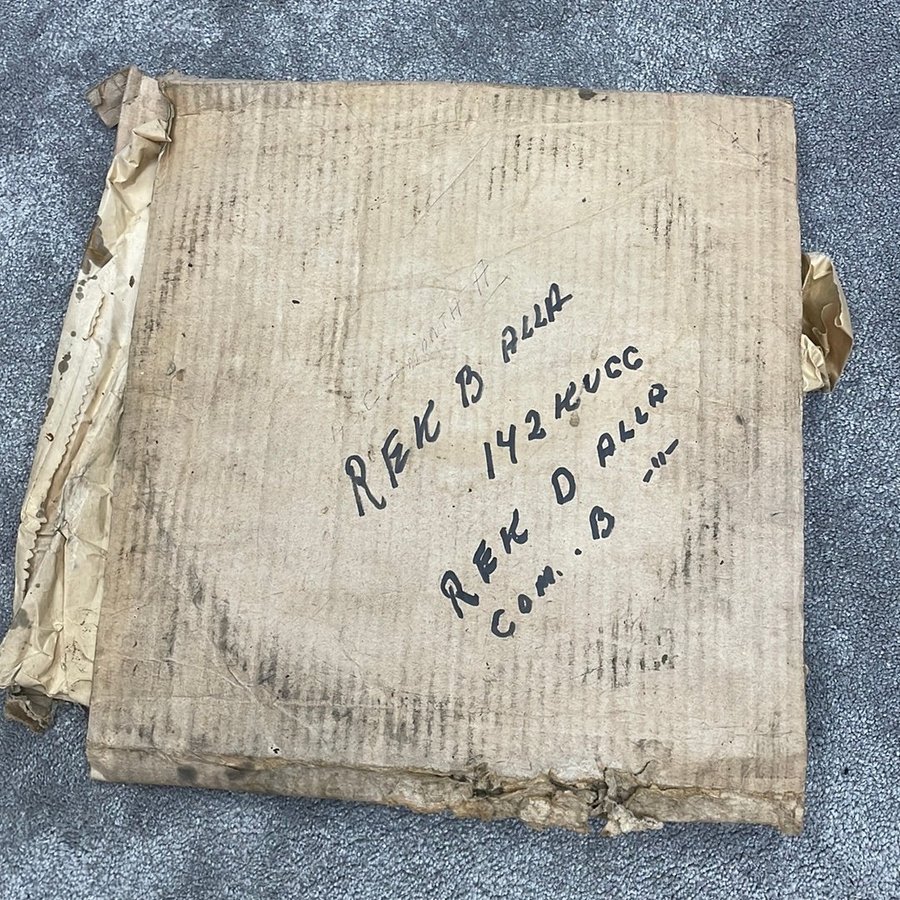 REK B ALLA
142 KUGG
REK D ALLA
COM. . B -"-